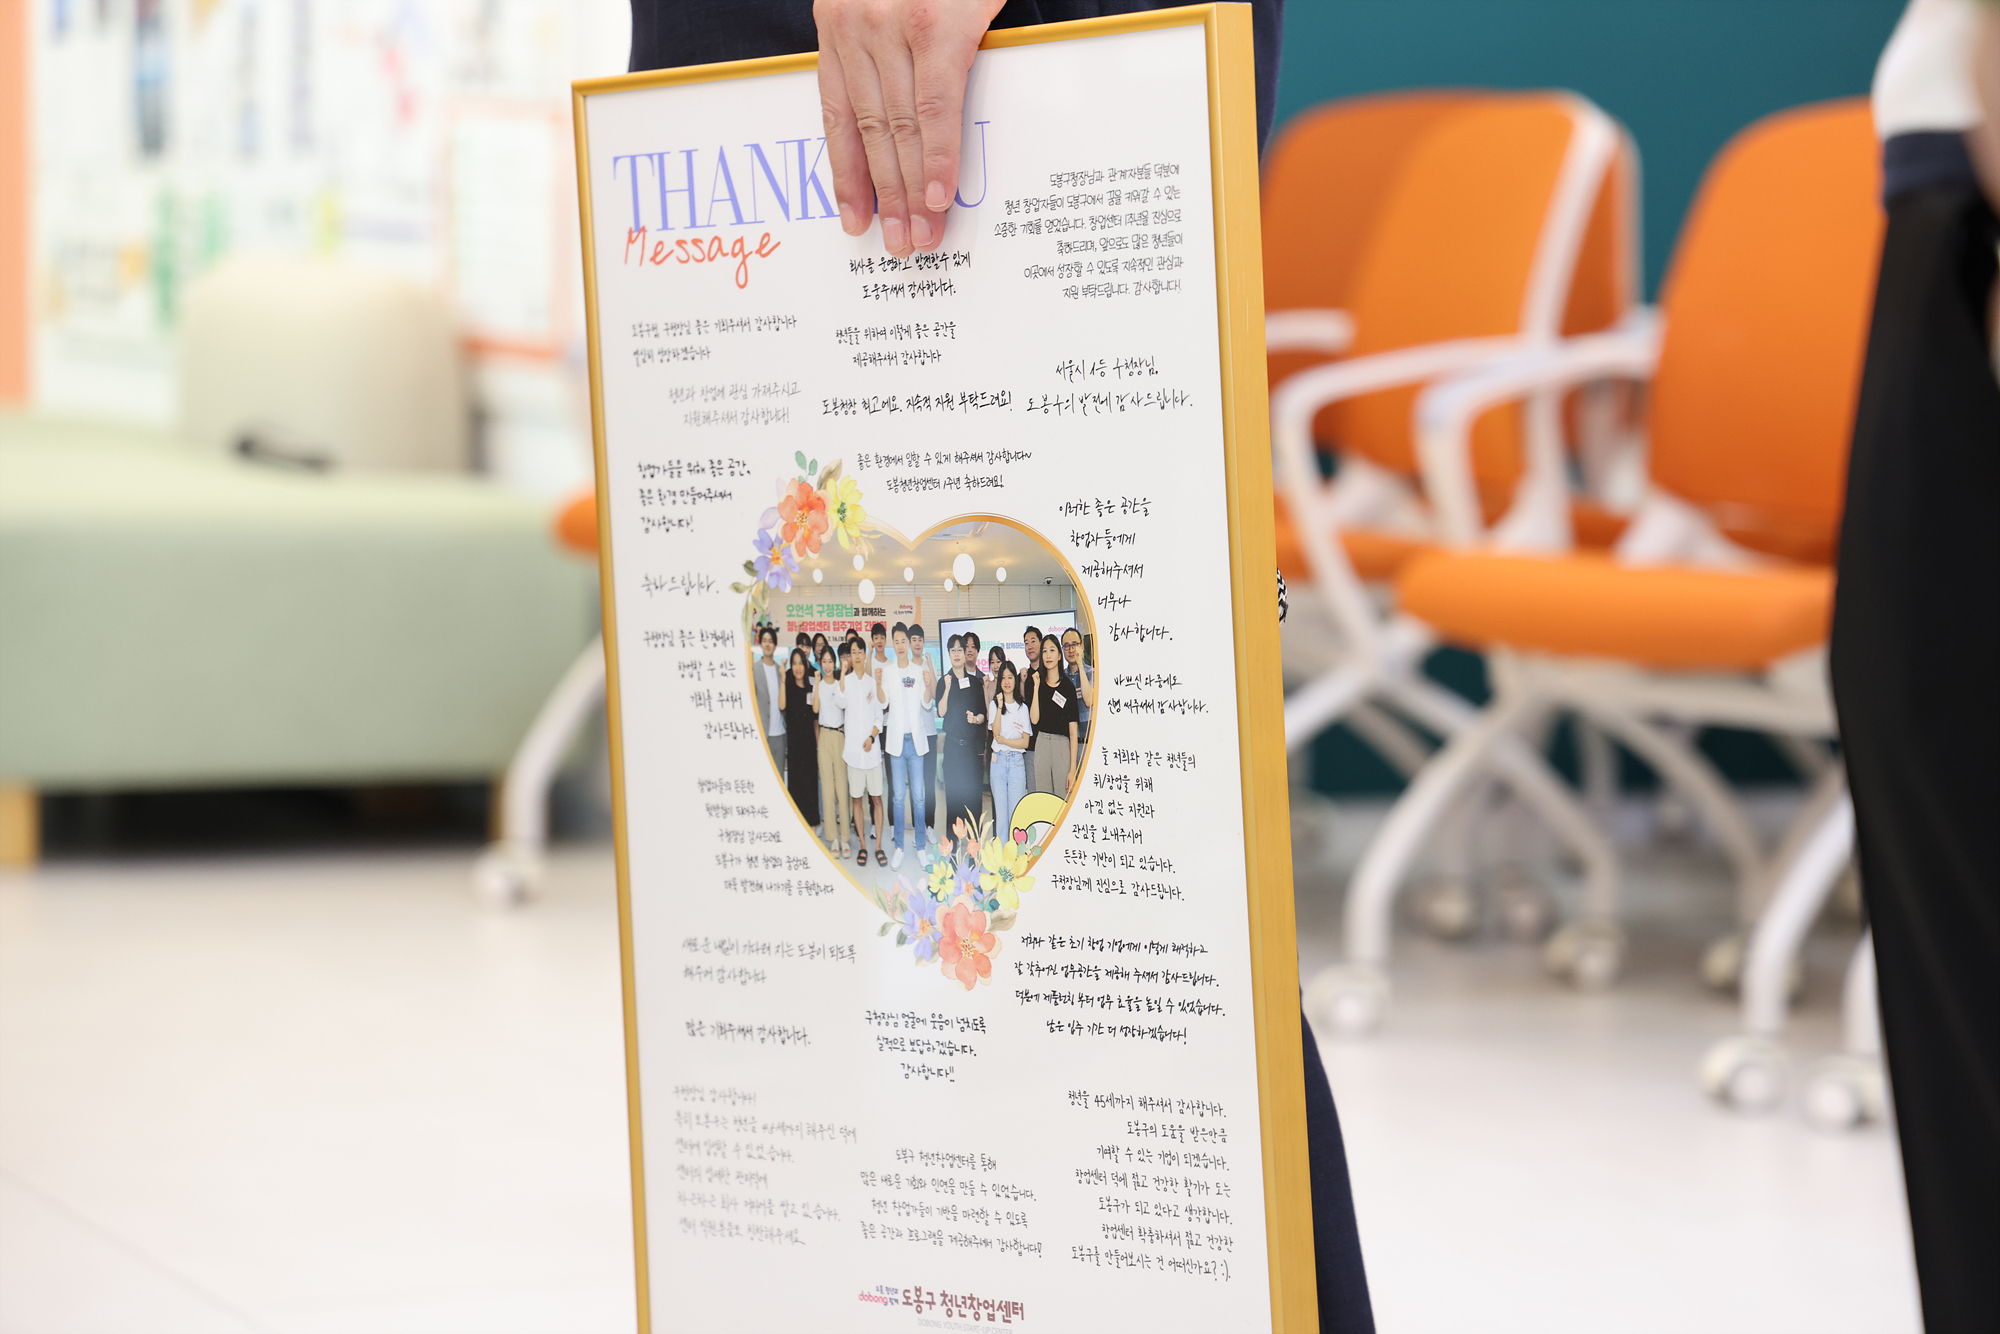 THANK YOU
Message
도봉구청장님과 관계자분들 덕분에
청년 창업자들이 도봉구에서 꿈을 키워갈 수 있는
소중한 기회를 얻었습니다. 창업센터 1주년을 진심으로
축하드리며, 앞으로도 많은 청년들이
이곳에서 성장할 수 있도록 지속적인 관심과
지원 부탁드립니다. 감사합니다!
회사를 운영하고 발전할 수 있게
도움주셔서 감사합니다.
구청장님 좋은 기회주셔서 감사합니다
열심히 성장하겠습니다
청년들을 위하여 이렇게 좋은 공간을
제공해주셔서 감사합니다
청년과 창업에 관심 가져주시고
지원해주셔서 감사합니다!
도봉청창 최고에요. 지속적 지원 부탁드려요!
서울시 1등 구청장님,
도봉구의 발전에 감사드립니다.
창업가들을 위해 좋은 공간,
좋은 환경 만들어주셔서
감사합니다!
좋은 환경에서 일할 수 있게 해주셔서 감사합니다~
도봉청년창업센터 1주년 축하드려요!
이러한 좋은 공간을
창업자들에게
제공해주셔서
너무나
감사합니다.
축하드립니다.
오언석 구청장님과 함께하는
청년창업센터 입주기업 간담회
구청장님 좋은 환경에서
창업할 수 있는
기회를 주셔서
감사드립니다.
바쁘신 와중에도
신경 써주셔서 감사합니다.
늘 저희와 같은 청년들의
취/창업을 위해
아낌 없는 지원과
관심을 보내주시어
든든한 기반이 되고 있습니다.
구청장님께 진심으로 감사드립니다.
창업자들의 든든한
뒷받침이 되어주시는
구청장님 감사드려요
도봉구가 청년 창업의 중심지로
더욱 발전해 나가기를 응원합니다
새로운 내일이 기다려 지는 도봉이 되도록
해주어 감사합니다
저희와 같은 초기 창업 기업에게 이렇게 쾌적하고
잘 갖추어진 업무공간을 제공해 주셔서 감사드립니다.
덕분에 제품런칭 부터 업무 효율을 높일 수 있었습니다.
남은 입주 기간 더 성장하겠습니다!
많은 기회주셔서 감사합니다.
구청장님 얼굴에 웃음이 넘치도록
실적으로 보답하겠습니다.
감사합니다!!
구청장님 감사합니다!
특히 도봉구는 청년을 45세까지 해주신 덕에
센터에 입주할 수 있었습니다.
회사
센터 직원분들도 칭찬해주세요.
도봉구 청년창업센터를 통해
많은 새로운 기회와 인연을 만들 수 있었습니다.
청년 창업가들이 기반을 마련할 수 있도록
좋은 공간과 프로그램을 제공해주셔서 감사합니다!
청년을 45세까지 해주셔서 감사합니다.
도봉구의 도움을 받은만큼
기여할 수 있는 기업이 되겠습니다.
창업센터 덕에 젊고 건강한 활기가 도는
도봉구가 되고 있다고 생각합니다.
창업센터 확충하셔서 젊고 건강한
도봉구를 만들어보시는 건 어떠신가요? :).
dobong 도봉구 청년창업센터
DOBONG YOUTH START-UP CENTER